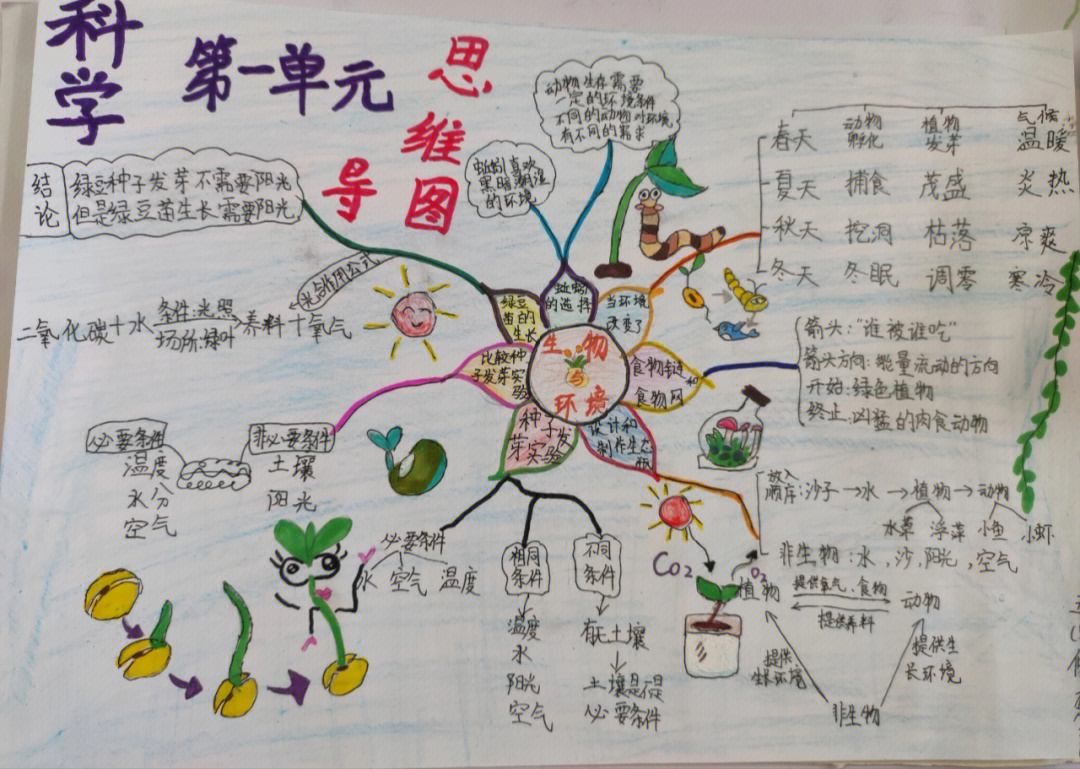 科学
第一单元
思维导图
结论
绿豆种子发芽不需要阳光
但是绿豆苗生长需要阳光
动物生存需要
一定的环境条件
不同的动物对环境
有不同的需求
蚯蚓喜欢
黑暗潮湿
的环境
动物 植物 气候
春天 孵化 发芽 温暖
夏天 捕食 茂盛 炎热
秋天 挖洞 枯落 凉爽
冬天 冬眠 调零 寒冷
光合作用公式
二氧化碳+水 条件:光照 养料+氧气
场所:绿叶
绿豆
苗的
生长
蚯蚓
的选择
当环境
改变了
比较种
子发芽实
验
生物
与
环境
食物链
和
食物网
种子发
芽实验
设计和
制作生态
瓶
箭头:“谁被谁吃”
箭头方向:能量流动的方向
开始:绿色植物
终止:凶猛的肉食动物
必要条件
温度
水分
空气
非必要条件
土壤
阳光
必要条件
水 空气 温度
相同
条件
温度
水
阳光
空气
不同
条件
有无土壤
土壤是否是
必要条件
放入
顺序:沙子→水→植物→动物
水草 浮萍 小鱼 小虾
非生物:水,沙,阳光,空气
CO2
O2
植物 提供氧气、食物 动物
提供养料
提供
生长环境
提供生
长环境
非生物